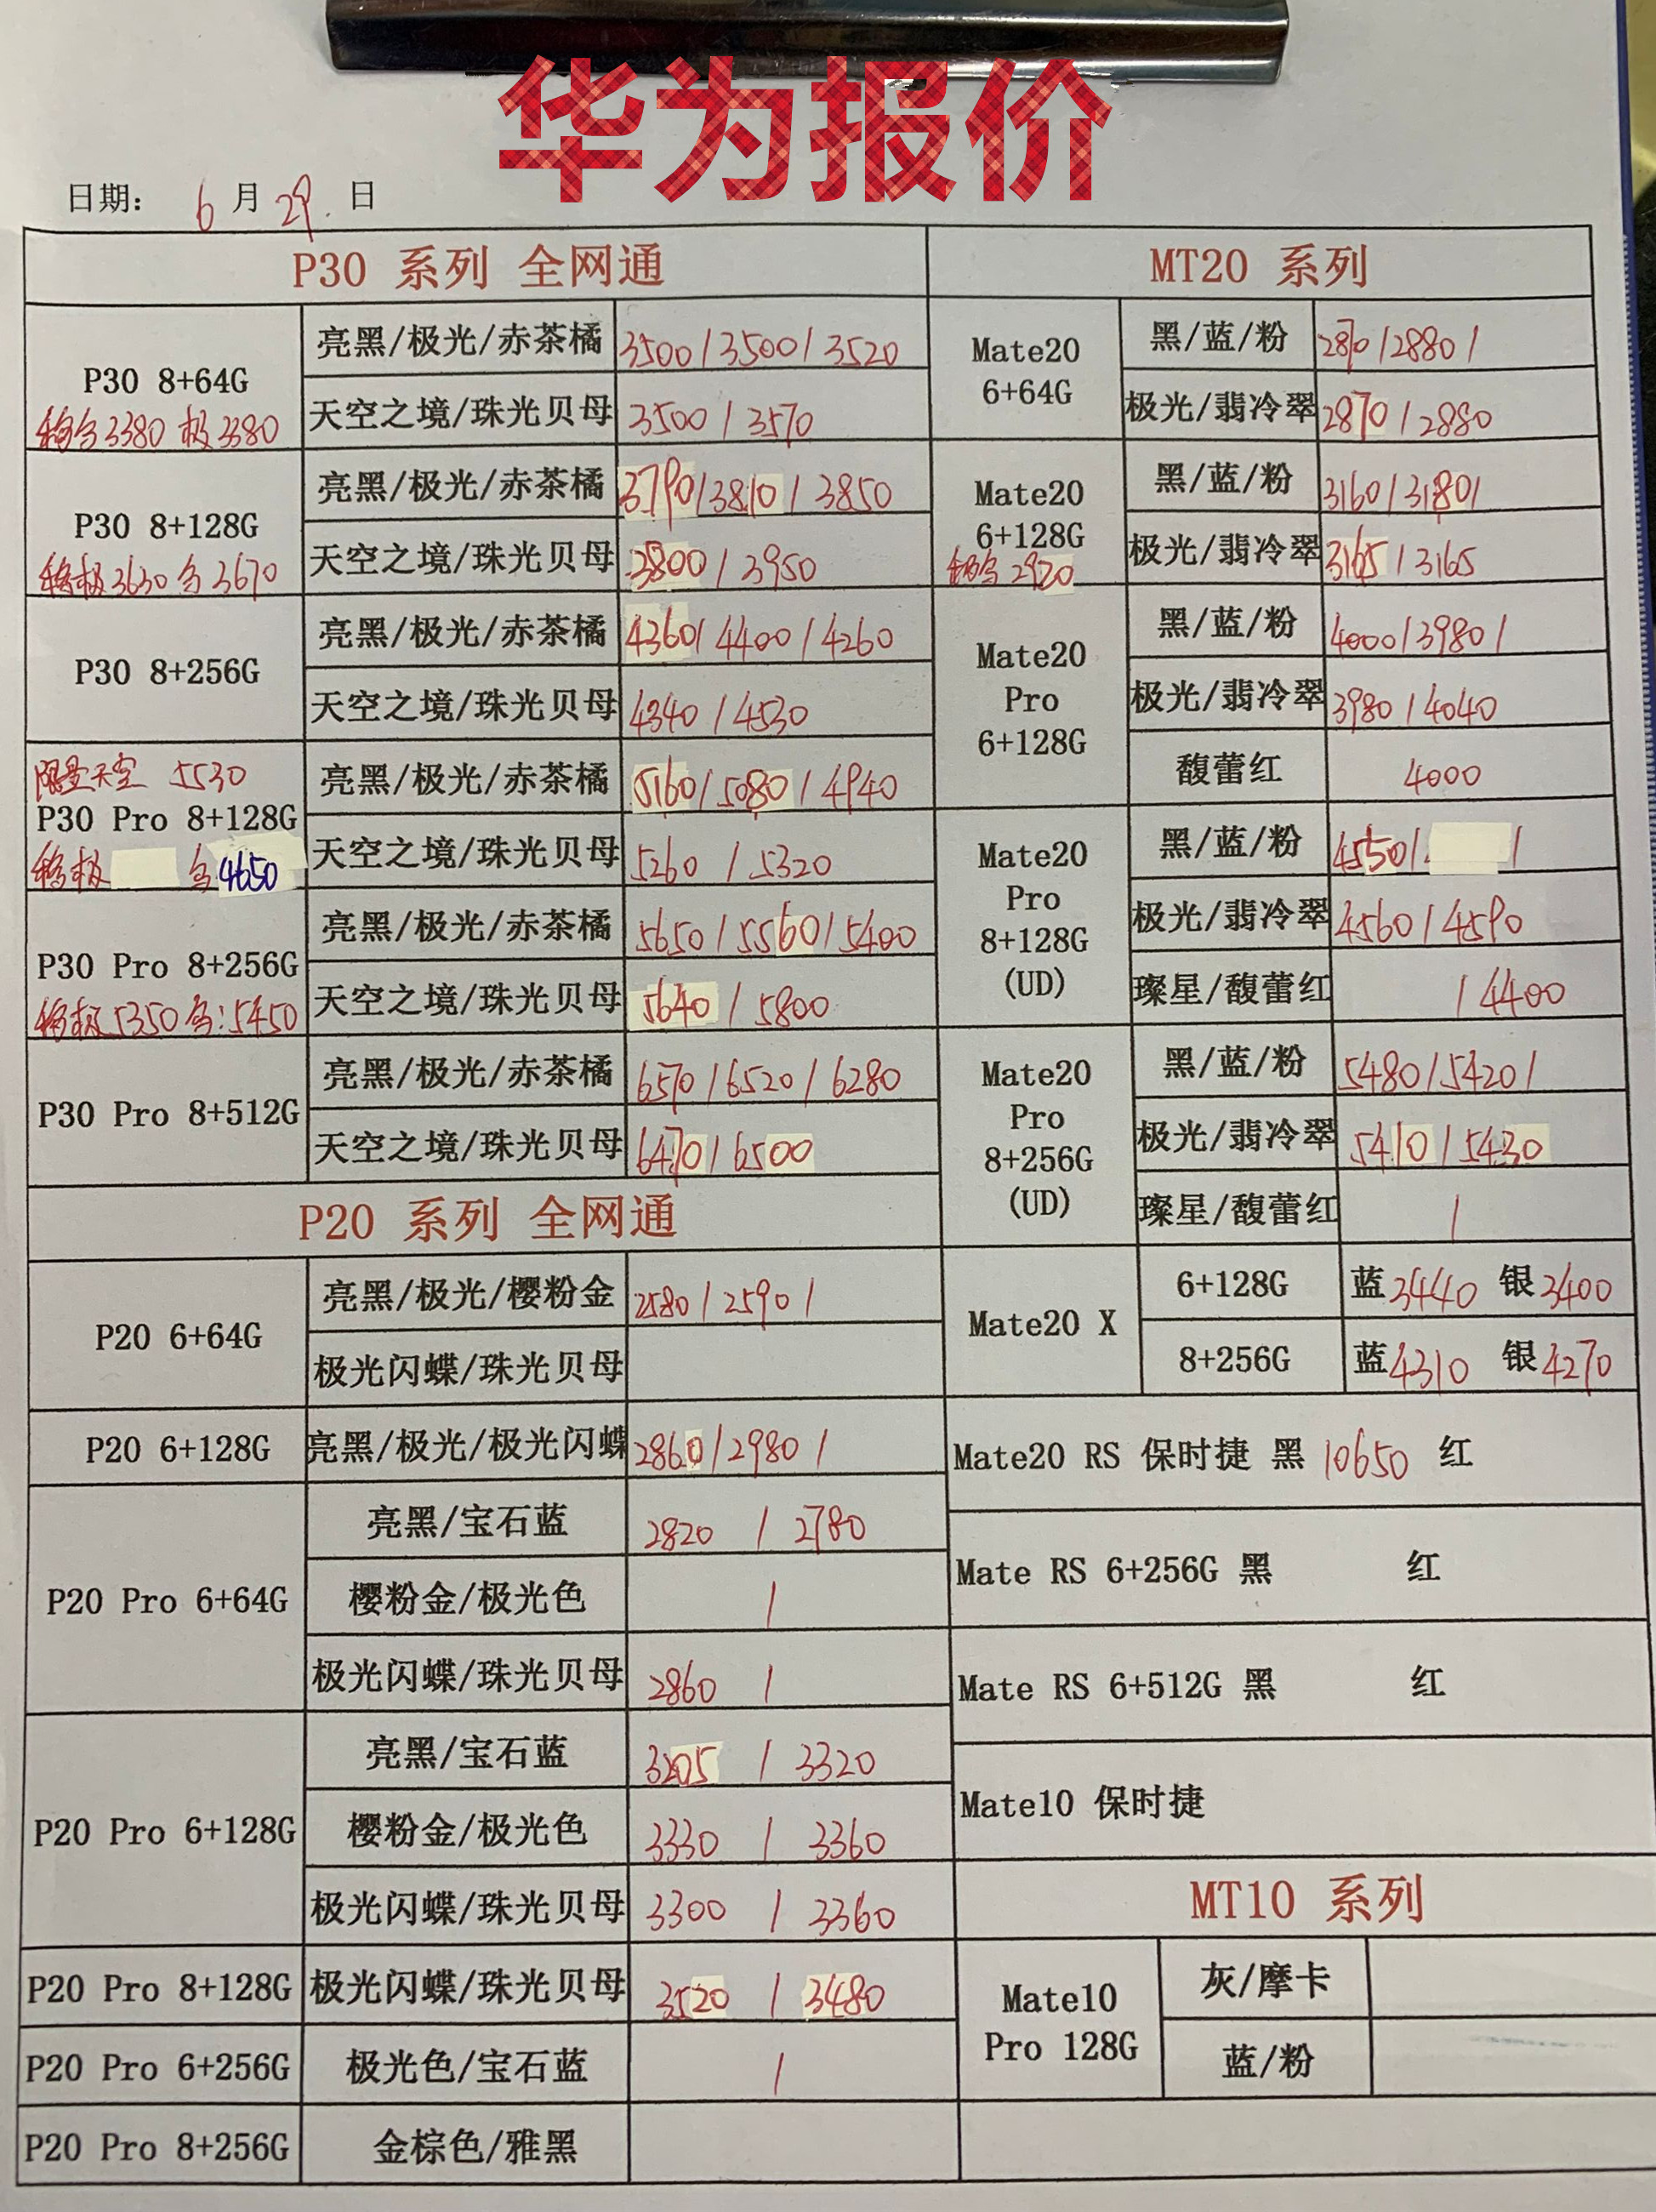 华为报价
日期: 6 月 29. 日
P30 系列 全网通
P30 8+64G
亮黑/极光/赤茶橘 3500/3500/3520
天空之境/珠光贝母 3500/3570
3380 极 3380
P30 8+128G
亮黑/极光/赤茶橘 3790/3810/3850
天空之境/珠光贝母 3800/3950
移极3630 3670
P30 8+256G
亮黑/极光/赤茶橘 4360/4400/4260
天空之境/珠光贝母 4340/4530
限量天空 5530
P30 Pro 8+128G
亮黑/极光/赤茶橘 5160/5080/4940
天空之境/珠光贝母 5260/5320
移极 4650
P30 Pro 8+256G
亮黑/极光/赤茶橘 5650/5560/5400
天空之境/珠光贝母 5640/5800
移极5350 :5450
P30 Pro 8+512G
亮黑/极光/赤茶橘 6570/6520/6280
天空之境/珠光贝母 6470/6500
P20 系列 全网通
P20 6+64G
亮黑/极光/樱粉金 2580/2590/
极光闪蝶/珠光贝母
P20 6+128G
亮黑/极光/极光闪蝶 2860/2980/
P20 Pro 6+64G
亮黑/宝石蓝 2820/2780
樱粉金/极光色 /
极光闪蝶/珠光贝母 2860/
P20 Pro 6+128G
亮黑/宝石蓝 3205/3320
樱粉金/极光色 3330/3360
极光闪蝶/珠光贝母 3300/3360
P20 Pro 8+128G
极光闪蝶/珠光贝母 3520/3480
P20 Pro 6+256G
极光色/宝石蓝 /
P20 Pro 8+256G
金棕色/雅黑
MT20 系列
Mate20
6+64G
黑/蓝/粉 2870/2880/
极光/翡冷翠 2870/2880
Mate20
6+128G
2920
黑/蓝/粉 3160/3180/
极光/翡冷翠 3165/3165
Mate20
Pro
6+128G
黑/蓝/粉 4000/3980/
极光/翡冷翠 3980/4040
馥蕾红 4000
Mate20
Pro
8+128G
(UD)
黑/蓝/粉 4550/ /
极光/翡冷翠 4560/4590
璨星/馥蕾红 /4400
Mate20
Pro
8+256G
(UD)
黑/蓝/粉 5480/5420/
极光/翡冷翠 5410/5430
璨星/馥蕾红 /
Mate20 X
6+128G 蓝3440 银3400
8+256G 蓝4310 银4270
Mate20 RS 保时捷 黑 10650 红
Mate RS 6+256G 黑 红
Mate RS 6+512G 黑 红
Mate10 保时捷
MT10 系列
Mate10
Pro 128G
灰/摩卡
蓝/粉